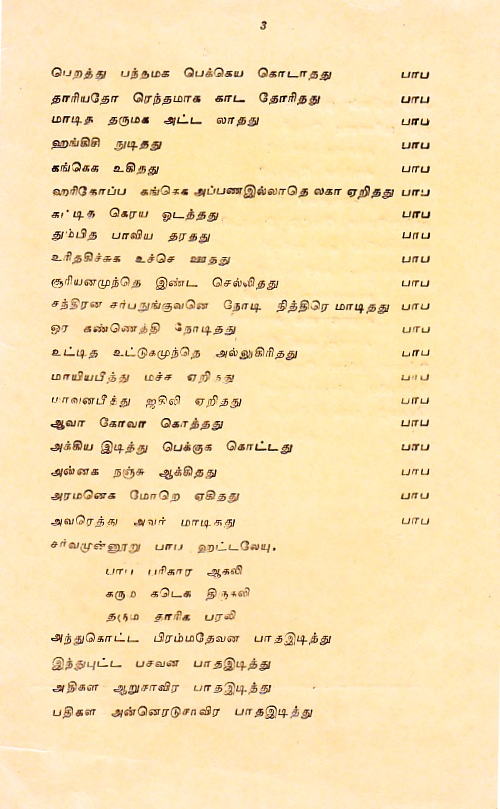 3
பெறத்து பந்நமக பெக்கெய கொடாதது பாப
தாரியதோ ரெந்தமாக காட தோரிதது பாப
மாடித தருமக அட்ட லாதது பாப
ஹங்கிசி நுடிதது பாப
கங்கெக உகிதது பாப
ஹரிகோப்ப கங்கெக அப்பணஇல்லாதெ லகா ஏறிதது பாப
கட்டித கெரய ஒடத்தது பாப
தும்பித பாவிய தரதது பாப
உரிதகிச்சுக உச்செ ஊதது பாப
சூரியனமுந்தெ இண்ட செல்லிதது பாப
சந்திரன சர்பநுங்குவனெ நோடி நித்திரெ மாடிதது பாப
ஒர கண்ணெத்தி நோடிதது பாப
உட்டித உட்டுகமுந்தெ அல்லுகிரிதது பாப
மாயியபீத்து மச்ச ஏறிதது பாப
மாவனபீத்து ஜகிலி ஏறிதது பாப
ஆவா கோவா கொத்தது பாப
அக்கிய இடித்து பெக்குக கொட்டது பாப
அல்னக நஞ்சு ஆக்கிதது பாப
அரமனெக மோறெ ஏகிதது பாப
அவரெத்து அவர் மாடிதது பாப
சர்வமுன்னூறு பாப ஹட்டலேயு.
பாப பரிகார ஆகலி
கரும கடெக திருகலி
தரும தாரிக பரலி
அந்துகொட்ட பிரம்மதேவன பாதஇடிந்து
இந்துபுட்ட பசவன பாதஇடித்து
அதிகள ஆறுசாவிர பாதஇடித்து
பதிகள அன்னெரடுசாவிர பாதஇடித்து